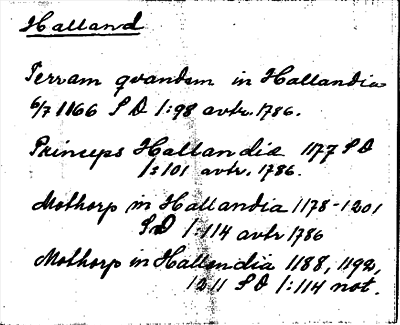 Halland
Terram qvandam in Hallandia
6/7 1166 S D 1:98 avtr. 1786.
Princeps Hallandiæ 1177 S D
1:101 avtr. 1786.
Mothorp in Hallandia 1178-1201
S D 1:114 avtr 1786
Mothorp in Hallandia 1188, 1192,
1211 S D 1:114 not.